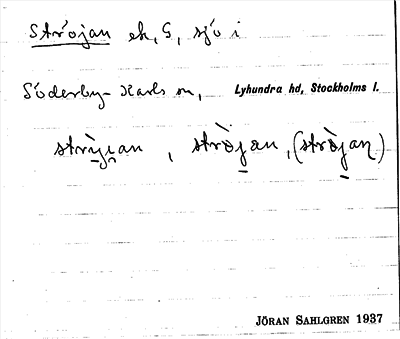 Ströjan ek, G, sjö i
Söderby-Karls sn, Lyhundra hd, Stockholms l.
strỳi̯an, strö̀jan, (strö̀jan)
JÖRAN SAHLGREN 1937